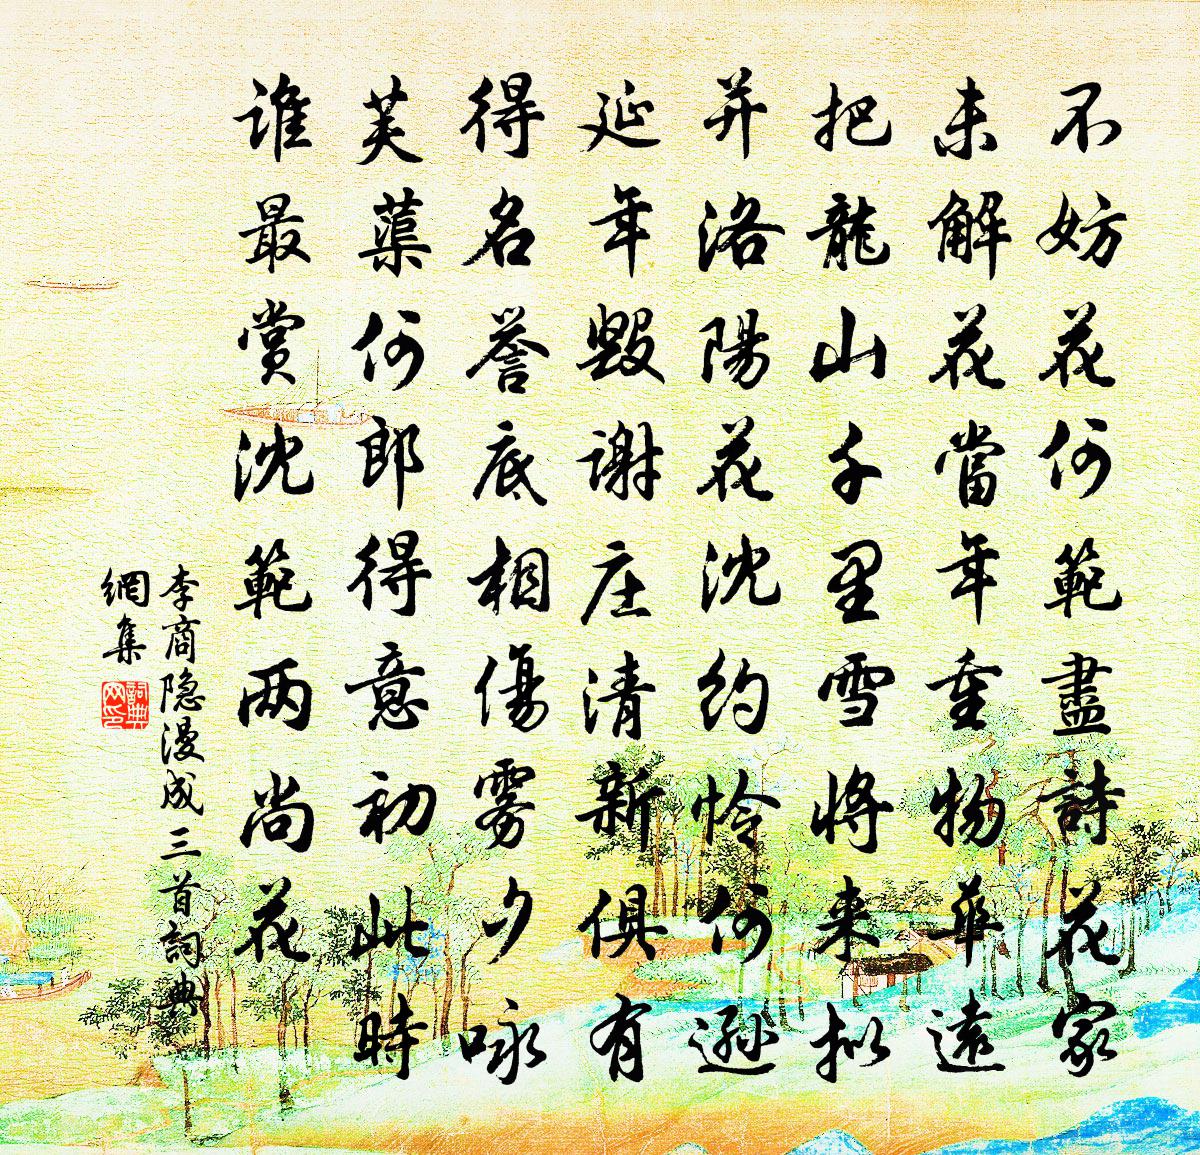 不妨花何範盡詩花家
未解花當年重物華遠
把龍山千里雪將来拟
并洛陽花沈約怜何遜
延年毀謝庄清新俱有
得名譽底相傷雾夕咏
芙蕖何郎得意初此時
谁最賞沈範两尚花
李商隐漫成三首詞典
網集
詞典
网印